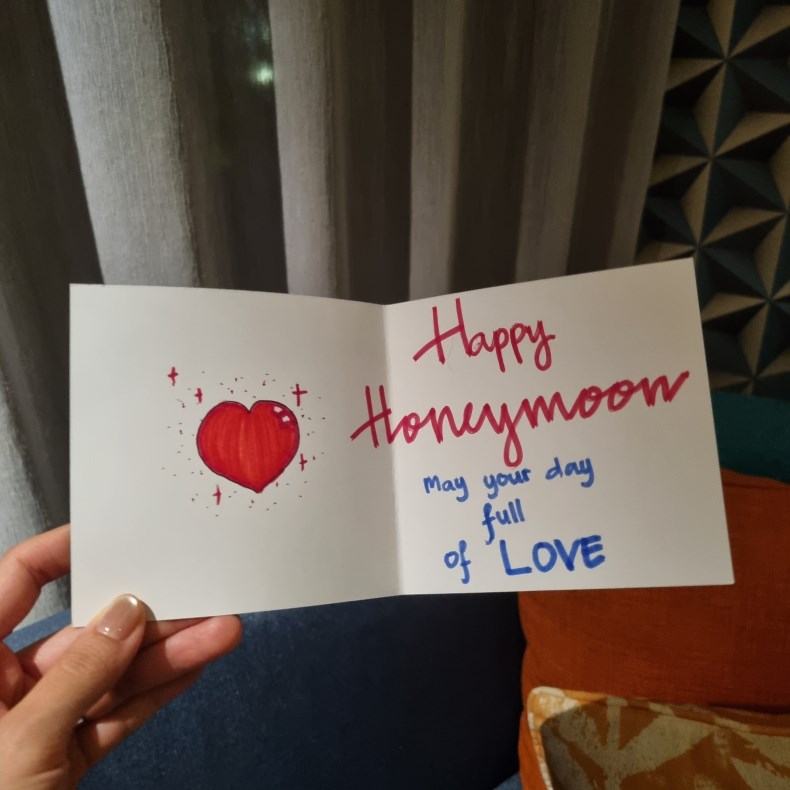 Happy
Honeymoon
May your day
full
of LOVE